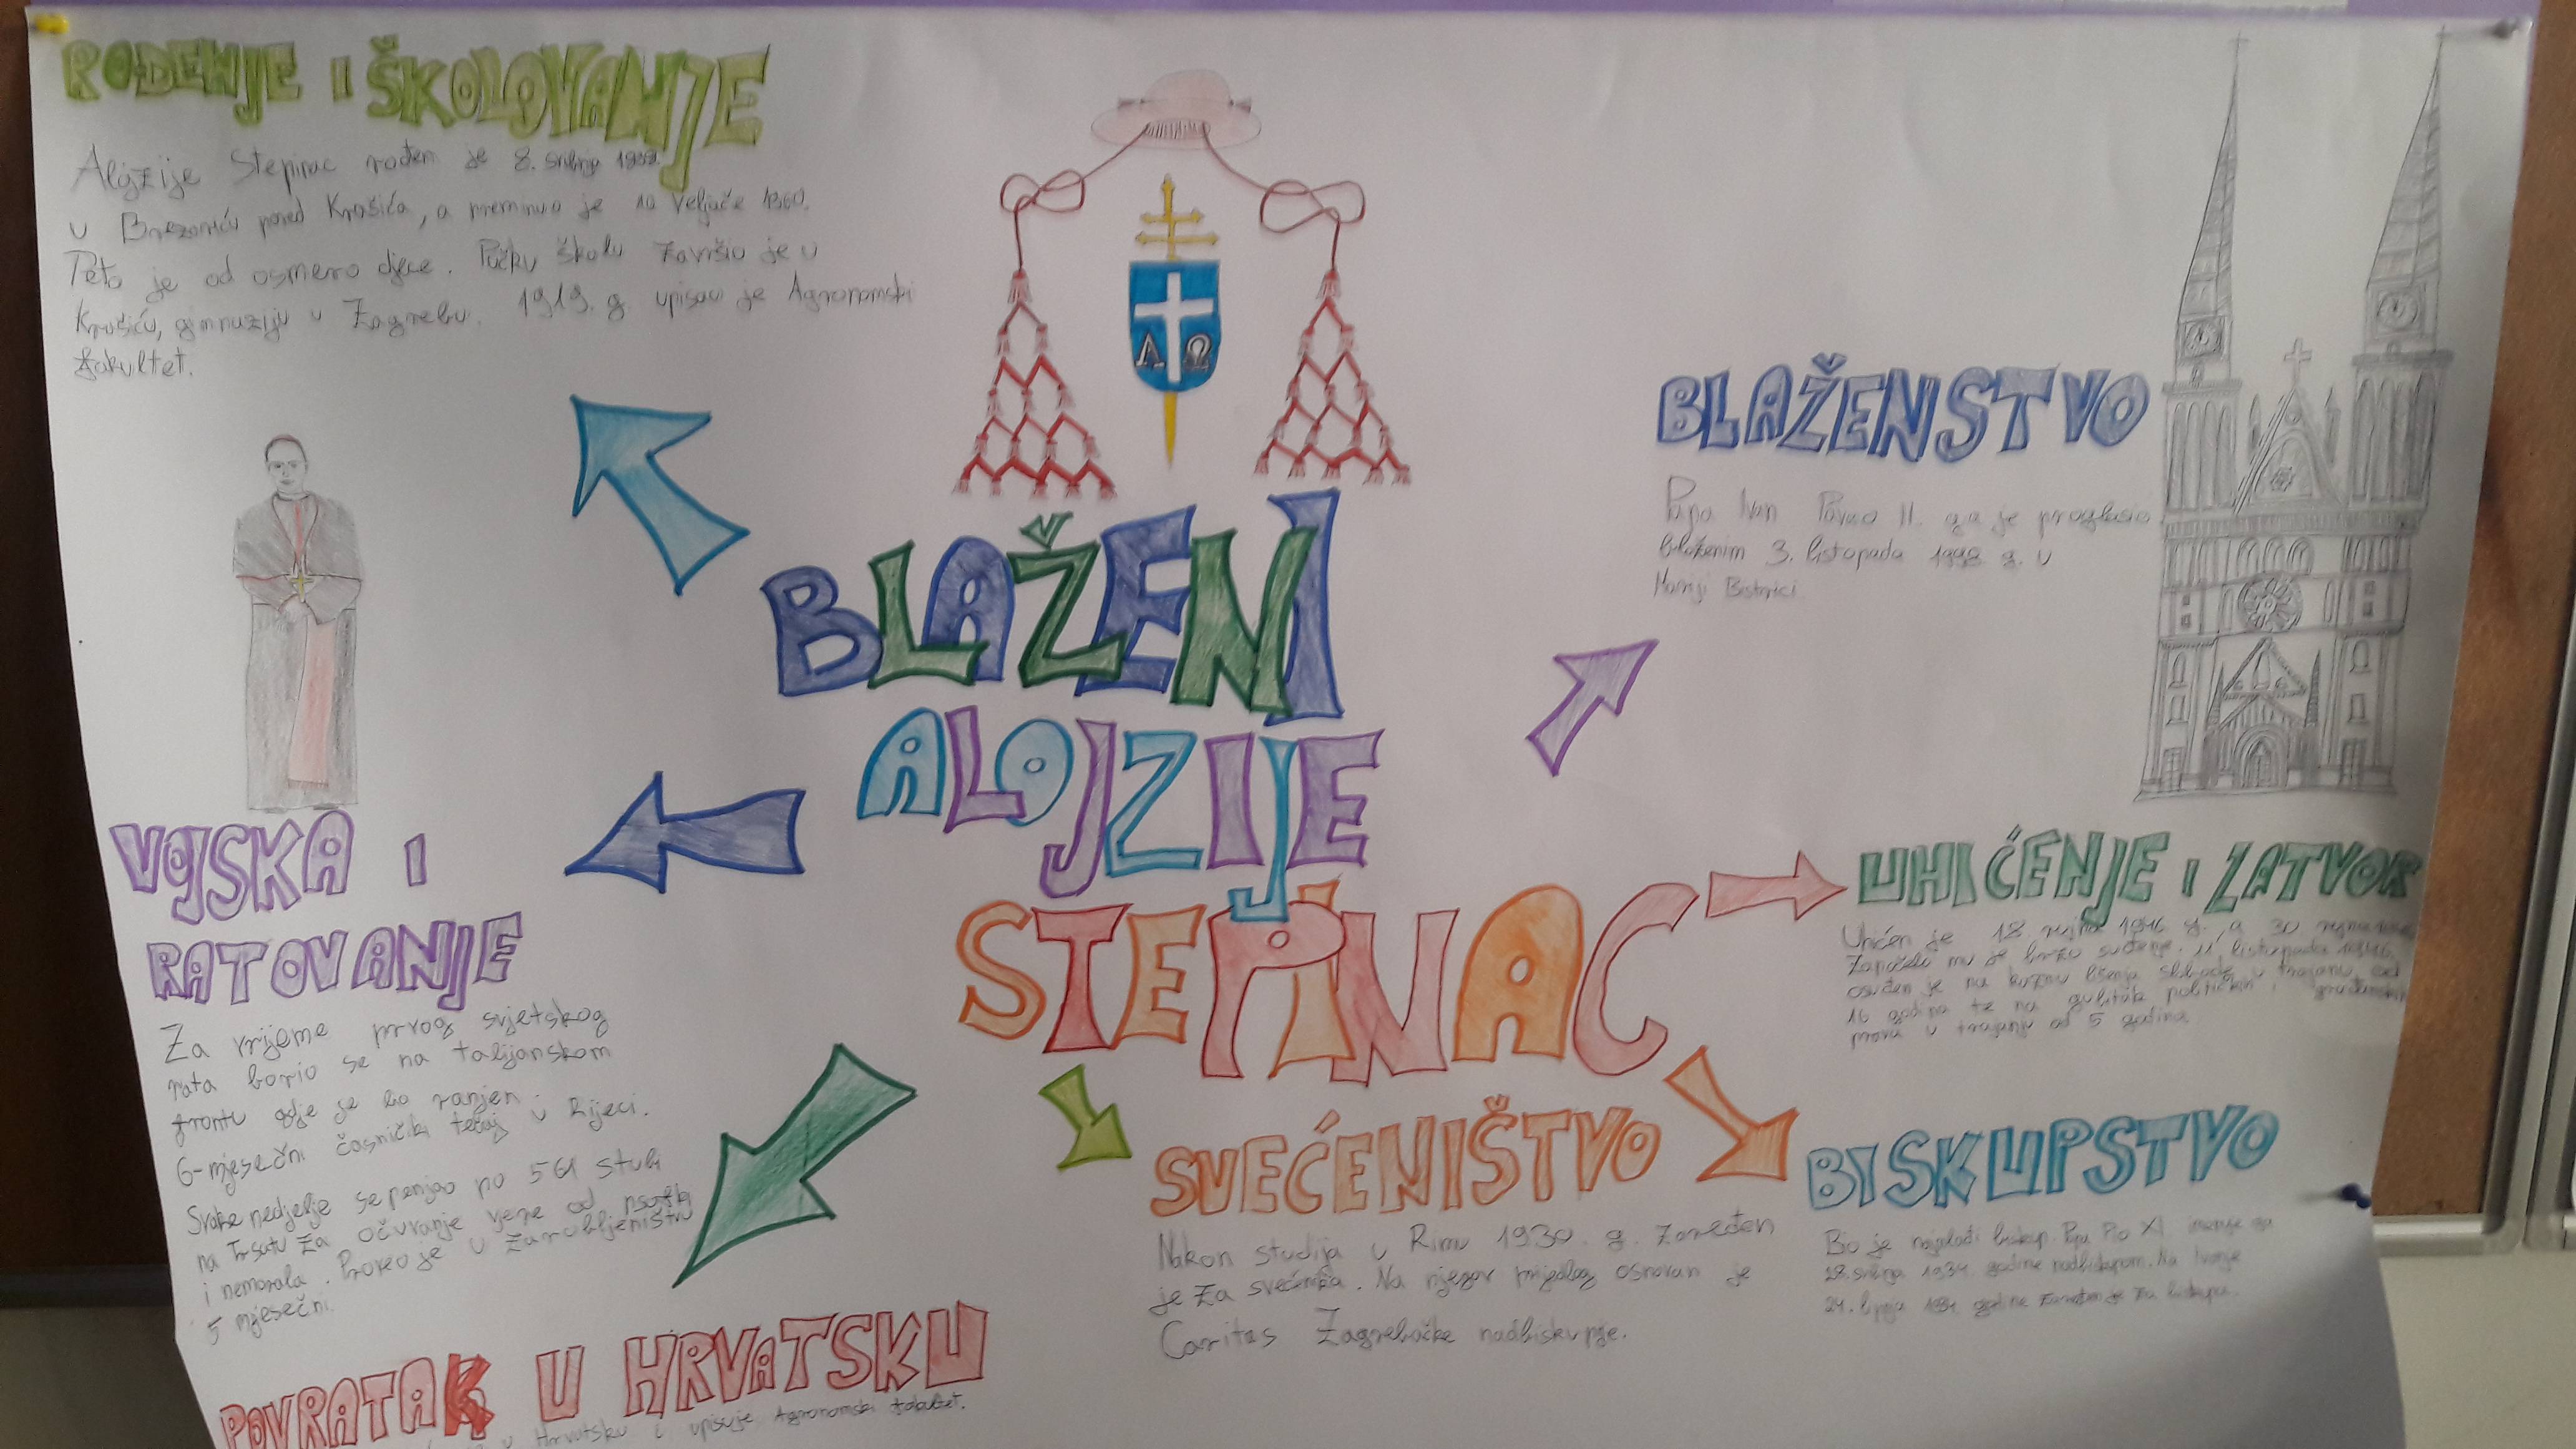 ROĐENJE I ŠKOLOVANJE
Alojzije Stepinac rođen je 8. svibnja
u Brezariću pored Krašića, a preminuo je 10 veljače 1960.
Peto je od osmero djece. Pučku školu završio je u
Krašiću, gimnaziju u Zagrebu. 1919. g. upisao je Agronomski
fakultet.
BLAŽENI
ALOJZIJE
STEPINAC
BLAŽENSTVO
Papa Ivan Pavao II. ga je proglasio
blaženim 3. listopada 1998 g. u
Mariji Bistrici
VOJSKA I
RATOVANJE
Za vrijeme prvog svjetskog
rata borio se na talijanskom
frontu gdje je bio ranjen.
6-mjesečni časnički tečaj u Rijeci.
Svake nedjelje se penjao po 561 stubi
na Trsatu za očuvanje vjere od
i nemorala. Proveo je u zarobljeništvu
5 mjesečni.
UHIĆENJE I ZATVOR
Uhićen je 18 rujna 1946 g., a 30 rujna
Započelo mu je brzo suđenje. 11 listopada 1946.
osuđen je na kaznu lišenja slobode u trajanju od
16 godina te na gubitak političkih i građanskih
prava u trajanju od 5 godina
SVEĆENIŠTVO
Nakon studija u Rimu 1930. g. zaređen
je za svećenika. Na njegov prijedlog osnovan je
Caritas Zagrebačke nadbiskupije.
BISKUPSTVO
Bio je najmlađi biskup. Papa Pio XI. imenuje ga
28. svibnja 1934. godine nadbiskupom. Na
24. lipnja 1934. godine zaređen je za biskupa.
POVRATAK U HRVATSKU
u Hrvatsku i upisuje Agronomski fakultet.
Α Ω